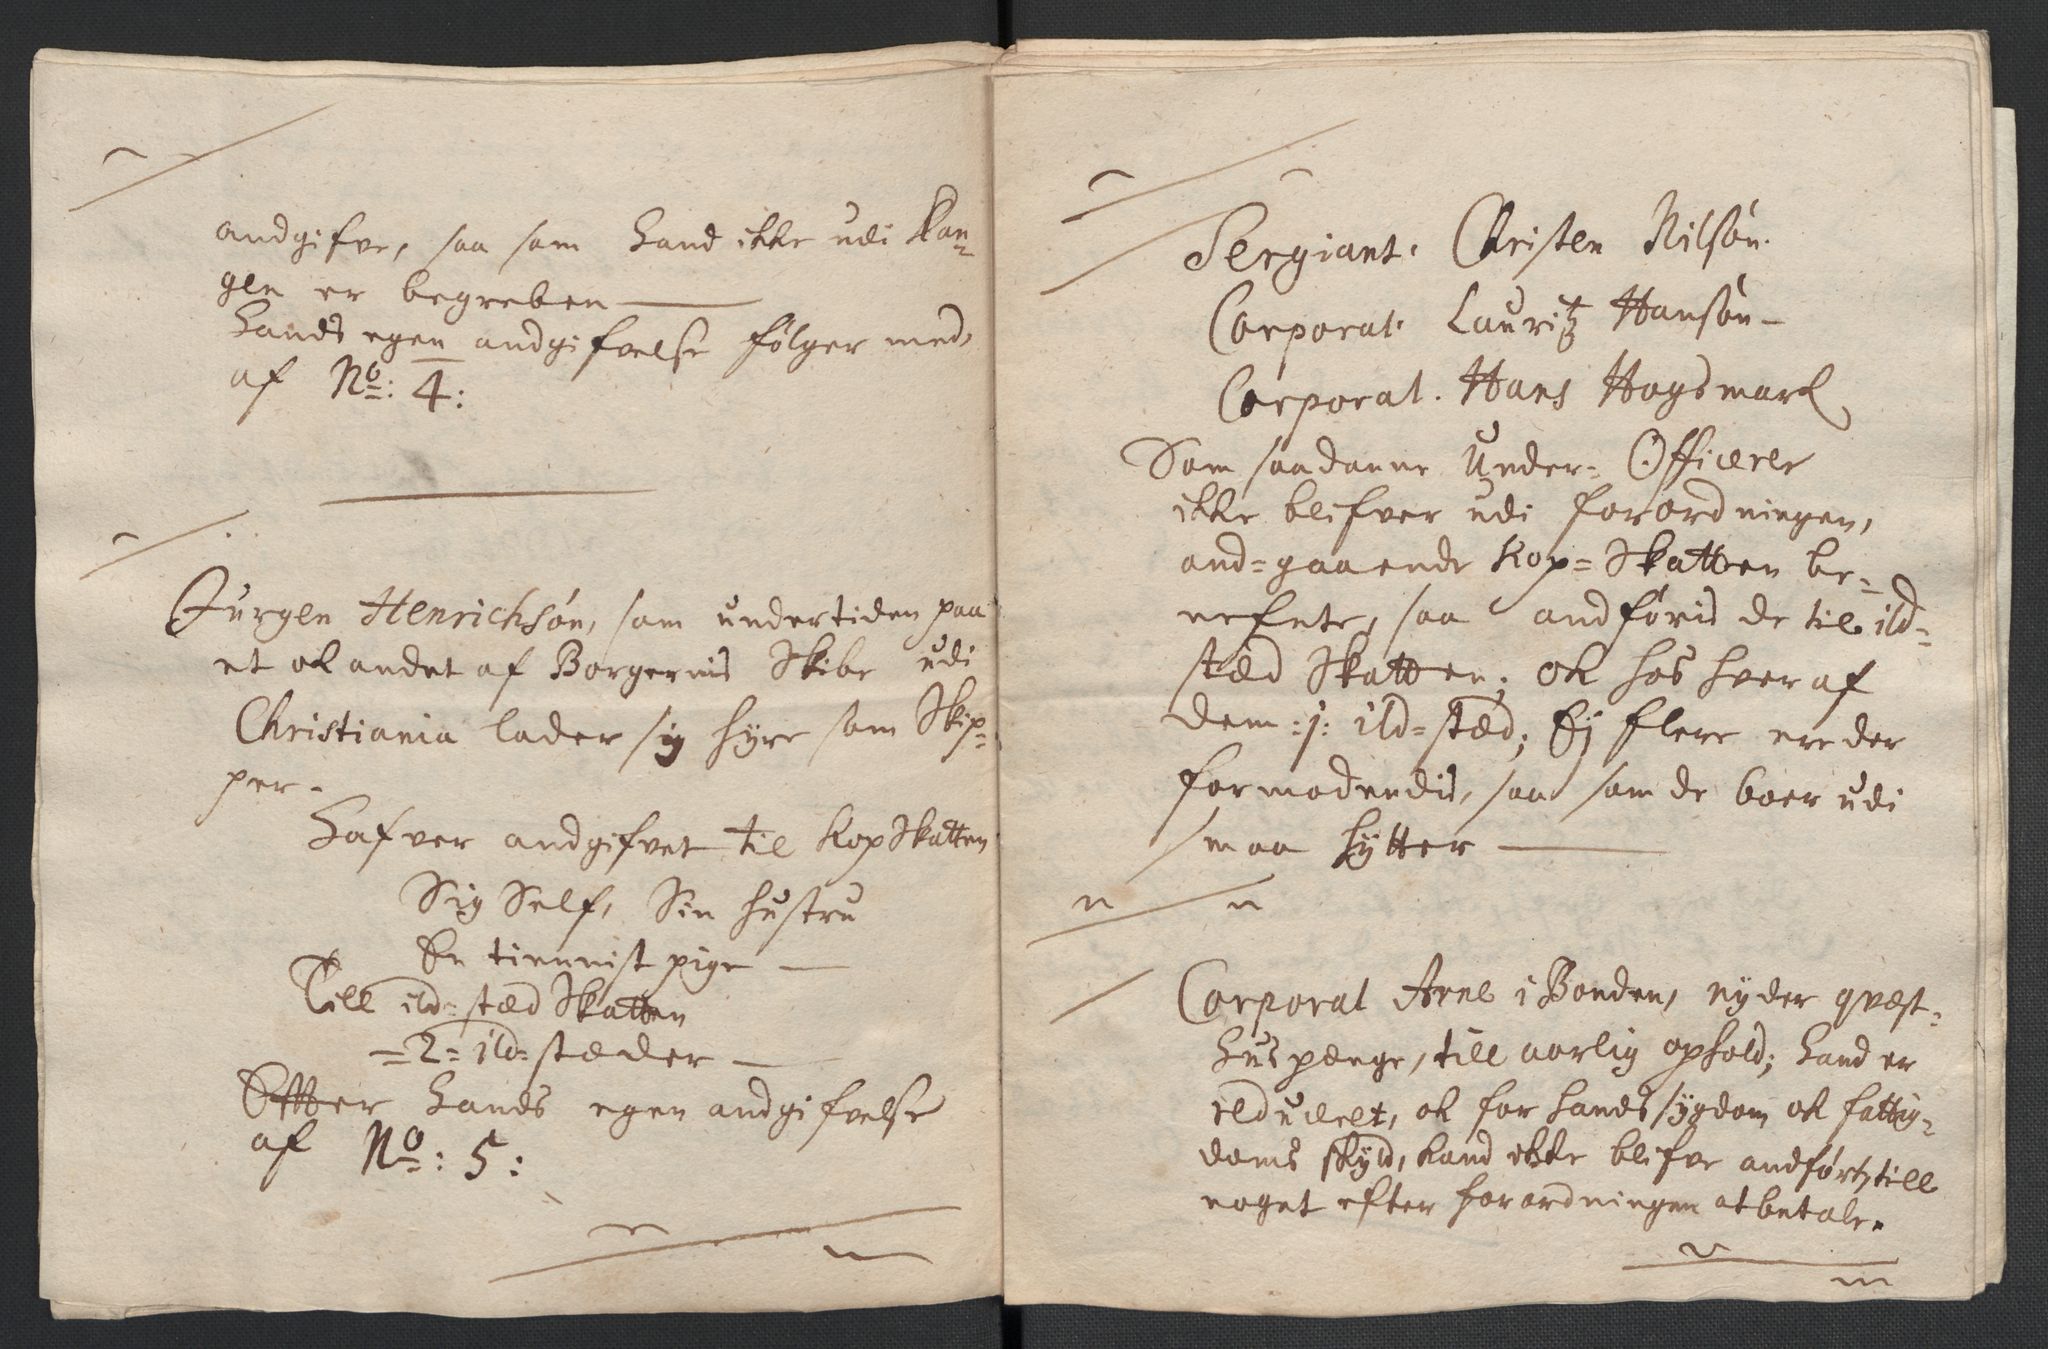 andgifve, saa som hand ikke udi Ran-
gen er begreben
hands egen andgifvelse følger med,
af No: 4:
Jurgen Henrichsøn, som undertiden paa
et ok andet af Borgernis Skibe udi
Christiania lader sig hyre som Skip-
per.
hafver andgifvet til KopSkatten
Sig Self, Sin hustru
En tiennist pige
Till ild-stæd Skatten
=2= ild-stæder
Effter hands egen andgifvelse
af No: 5:
Sergiant. Christen Nilsøn.
Corporal. Lauritz Hansøn
Corporal. Hans Hogsmark
Som saadanne Under-Officerer
ikke blifver udi forordningen,
and-gaaende Kop-Skatten be-
nefnte, saa andføris de til ild-
stæd Skatten; ok hos hver af
dem :1: ild-stæd; Ej flere ere der
formodendis, saa som de boer udi
smaa hytter
Corporal Arne i Bonden, nyder qvæst-
hus penge, till aarlig ophold; hand er
ok for hands sygdom ok fattig-
doms skyld, kand ikke blifve andført, till
noget efter forordningen at betale.